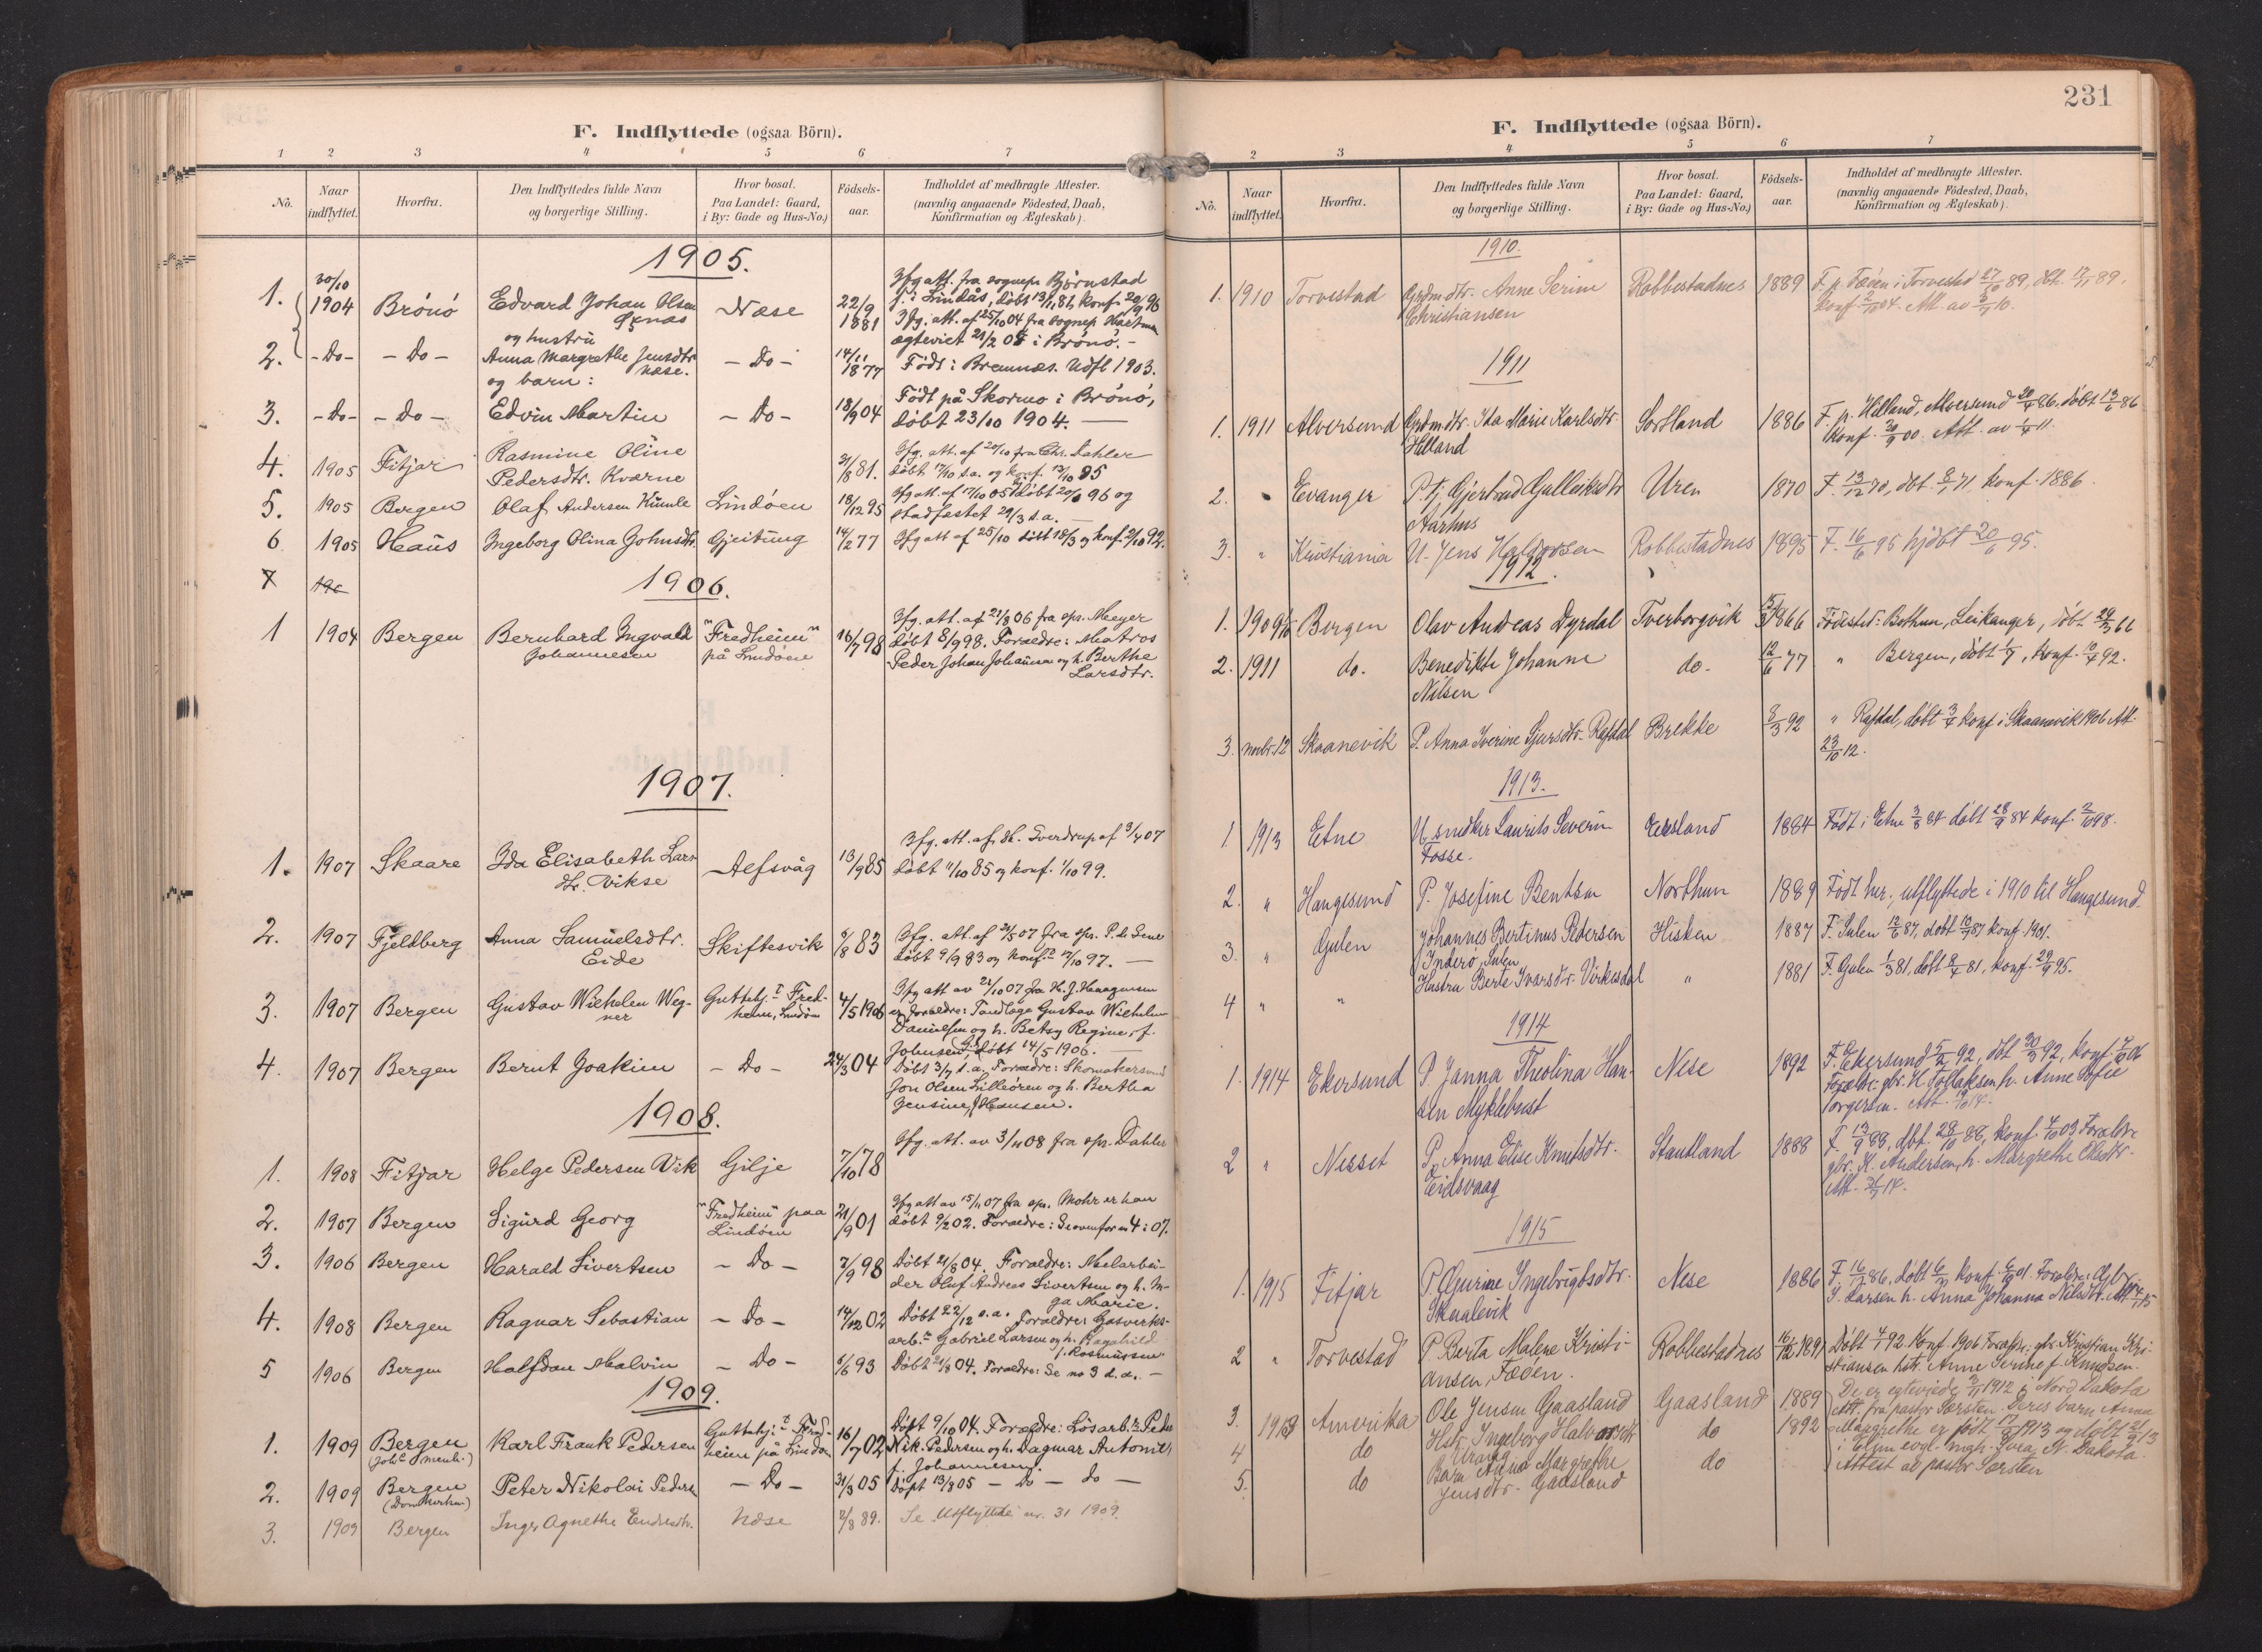 F. Indflyttede (ogsaa Börn).
1 2 3 4 5 6 7
No. Naar indflyttet. Hvorfra. Den Indflyttedes fulde Navn og borgerlige Stilling. Hvor bosat. Paa Landet: Gaard, i By: Gade og Hus-No.) Födsels-aar. Indholdet af medbragte Attester. (navnlig angaaende Födested, Daab, Konfirmation og Ægteskab).
1905.
1. 30/10 1904 Brönö Edvard Johan Olsen Næse 22/9 1881 Ifg att. fra sognepr. Björnstad
f. i Lindås, döbt 13/11 81, konf. 20/9 96
Ifg. att. af 25/10 04 fra sognep. Hartman
ægteviet 21/2 04 i Brönö. -
og hustru
2. - Do - - Do - Anna Margrethe Jensdtr. Næse. - Do - 14/11 1877 Födt i Bremnæs. Udfl 1903.
og barn:
3. - Do - - Do - Edvin Martin - Do - 18/9 04 Födt på Skormo i Brönö,
döbt 23/10 1904. -
4. 1905 Fitjar Rasmine Oline
Pedersdtr. Kværne 31/8 81. Ifg. att. af 20/10 fra Chr. Dahler
döbt 17/10 s.a. og konf. 13/10 95
5. 1905 Bergen Olaf Andersen Kumle Lindöen 18/12 95 Ifg att. af 17/10 05 döbt 20/6 96 og
stadfestet 29/3 s.a. -
6 1905 Haus Ingeborg Olina Johnsdtr. Gjeitung 14/2 77 Ifg att af 25/10 döbt 18/3 og konf. 2/10 92.
7 190
1906.
1 1904 Bergen Bernhard Ingvald
Johannesen "Fredheim"
på Lindöen 16/7 98 Ifg. att. af 21/3 06 fra spr. Meyer
döbt 8/9 98. Forældre: Matros
Peder Johan Johansen og h. Berthe
Larsdtr.
1907.
1. 1907 Skaare Ida Elisabeth Lars-
dtr. Vikse Aefsvåg 13/9 85 Ifg. att. af sk. Sverdrup af 9/4 07
döbt 11/10 85 og konf. 1/10 99.
2. 1907 Fjeldberg Anna Samuelsdtr.
Eide Skiftesvik 8/8 83 Ifg. att. af 21/5 07 fra spr. P. de Seve
döbt 9/9 83 og konf. 17/10 97. -
3. 1907 Bergen Gustav Wilhelm Weg-
ner Guttehj. Fred-
heim, Lindöen 4/5 1906 Ifg att av 21/10 07 fra H. J. Haagensen
er forældre: Tandlæge Gustav Wilhelm
Danielsen og h. Betsy Regine, f.
Johnsen, döbt 14/5 1906. -
4. 1907 Bergen Bernt Joakim - Do - 24/3 04 Döbt 3/7 s.a. Forældre: Skomakersvend
Jon Olsen Lilleören og h. Bertha
Gensine, f. Hansen.
1908.
1. 1908 Fitjar Helge Pedersen Vik Gilje 7/10 78 Ifg. att. av 3/4 08 fra spr. Dahler
2. 1907 Bergen Sigurd Georg "Fredheim" paa
Lindöen 21/9 01 Ifg att av 15/11 07 fra spr. Mohr er han
döbt 9/2 02. Forældre: Se ovenfor no 4 i 07.
3. 1906 Bergen Harald Sivertsen - Do - 7/9 98 Döbt 21/8 04. Forældre: Mælarbei-
der Oluf Andreas Sivertsen og h. In-
ga Marie.
4. 1908 Bergen Ragnar Sebastian - Do - 14/12 02 Döbt 22/12 s.a. Forældre: Gasverks-
arb. Gabriel Larsen og h. Ragnhild
f. Rasmussen
5 1906 Bergen Halfdan Malvin - Do - 6/6 93 Döbt 21/8 04. Forældre: Se no 3 d.a. -
1909.
1. 1909 Bergen
(Joh. menh.) Karl Frank Pedersen Guttehj. Fred-
heim på Lindöen 16/7 02 Döpt 9/10 04. Forældre: Lösarb. Peder
Nik. Pedersen og h. Dagmar Antonille
f. Johannesen.
2. 1909 Bergen
(Domkirken) Peter Nikolai Pedersen - Do - 31/3 05 Döpt 13/8 05 - Do - do -
3. 1909 Bergen Inger Agnethe Endresdtr. Næse 2/8 89. Se Utflyttede nr. 31 1909
231
F. Indflyttede (ogsaa Börn).
2 3 4 5 6 7
No. Naar indflyttet. Hvorfra. Den Indflyttedes fulde Navn og borgerlige Stilling. Hvor bosat. Paa Landet: Gaard, i By: Gade og Hus-No.) Födsels-aar. Indholdet af medbragte Attester. (navnlig angaaende Födested, Daab, Konfirmation og Ægteskab).
1910.
1. 1910 Torvestad Grdmdtr. Anne Serine
Christiansen Robbestadnes 1889 F. p. Fæöen i Torvestad 27/10 89, dbt. 17/11 89,
konf. 2/10 04. Att. av 3/9 10.
1911
1. 1911 Alversund Grdmdtr. Ida Marie Karlsdtr.
Helland Sortland 1886 F. p. Helland, Alversund 20/4 86, döbt 13/6 86
konf. 30/9 00. Att. av 1/4 11.
2. " Evanger P. tj. Gjertrud Gulleiksdtr
Aarhus Uren 1870 F. 13/12 70, dbt. 8/1 71, konf. 1886.
3. " Kristiania U. Jens Haldorsen Robbestadnes 1895 F. 16/6 95 hjdbt 20/6 95.
1912.
1. 1909/10 Bergen Olav Andreas Dyrdal Tverborgvik 5/3 1866 Födested: Bothun, Leikanger, döbt 29/3 66
2. 1911 do. Benedikte Johanne
Nilsen do. 12/6 77 " Bergen, döbt 1/7, konf. 10/4 92.
3. novbr. 12 Skaanevik P. Anna Iverine Sjursdtr. Rafdal Brekke 8/3 92 " Rafdal, döbt 3/4 konf. i Skaanevik 1906 Att.
23/10 12.
1913.
1 1913 Etne U. snedker Laurits Severin
Fosse. Eidesland 1884 Födt i Etne 3/8 84 döbt 28/9 84 konf. 2/10 98.
2. " Haugesund P. Josefine Bentsen Northun 1889 Födt her, utflyttede i 1910 til Haugesund.
3. " Gulen Johannes Bertinus Pedersen
Inderö, Sulen Hisken 1887 F. Sulen 12/6 87, döbt 10/7 87 konf. 1901.
4 " " Hustru Berte Ivarsdtr. Virkesdal " 1881 F. Gulen 1/3 81, döbt 8/4 81, konf. 29/9 95.
1914
1. 1914 Ekersund P. Janna Theolina Han-
sen Myklebust Nese 1892 F. Ekersund 5/2 92, döt 30/3 92, konf. 7/10 06
Forældre: gbr. H. Tollaksen h. Anne Sofie
Torgersen. Att. 19/10 14.
2 " Nesset P. Anna Elise Knutsdtr.
Eidsvaag Stautland 1888 F. 13/9 88, dbt. 28/10 88, konf. 4/10 03 Forældre
gbr. K. Andersen, h. Margrethe Olsdtr.
Att. 21/7 14.
1915
1. 1915 Fitjar P. Gurine Ingebrigtsdtr.
Skualevik Nese 1886 F. 16/1 86, döbt 6/2 konf. 6/10 01. Forældre: Gbr.
I. Larsen h. Anna Johanna Nilsdtr. Att 4/1 15
2 " Torvestad P. Berta Malene Kristi-
ansen, Fæöen. Robbestadnes 16/12 1891 Döbt 4/1 92 Konf. 1906 Forældre: gbr. Kristian Kri-
stiansen hstr. Anne Serine f. Knudsen.
3. 1913 Amerika Ole Jensen Gaasland Gaasland 1889 De er egteviede 3/11 1912 i Nord Dakota
Att. fra pastor Sørsten. Deres barn Anna
4 do Hstr. Ingeborg Halvorsdtr
Uraag do 1892 Margrethe er född 17/8 1913 og döbt 21/9 13
i Elim evgl. mgh. Svea N. Dakota.
5. do Barn Anna Margrethe
Jensdtr. Gaasland do Attest av pastor Sørsten